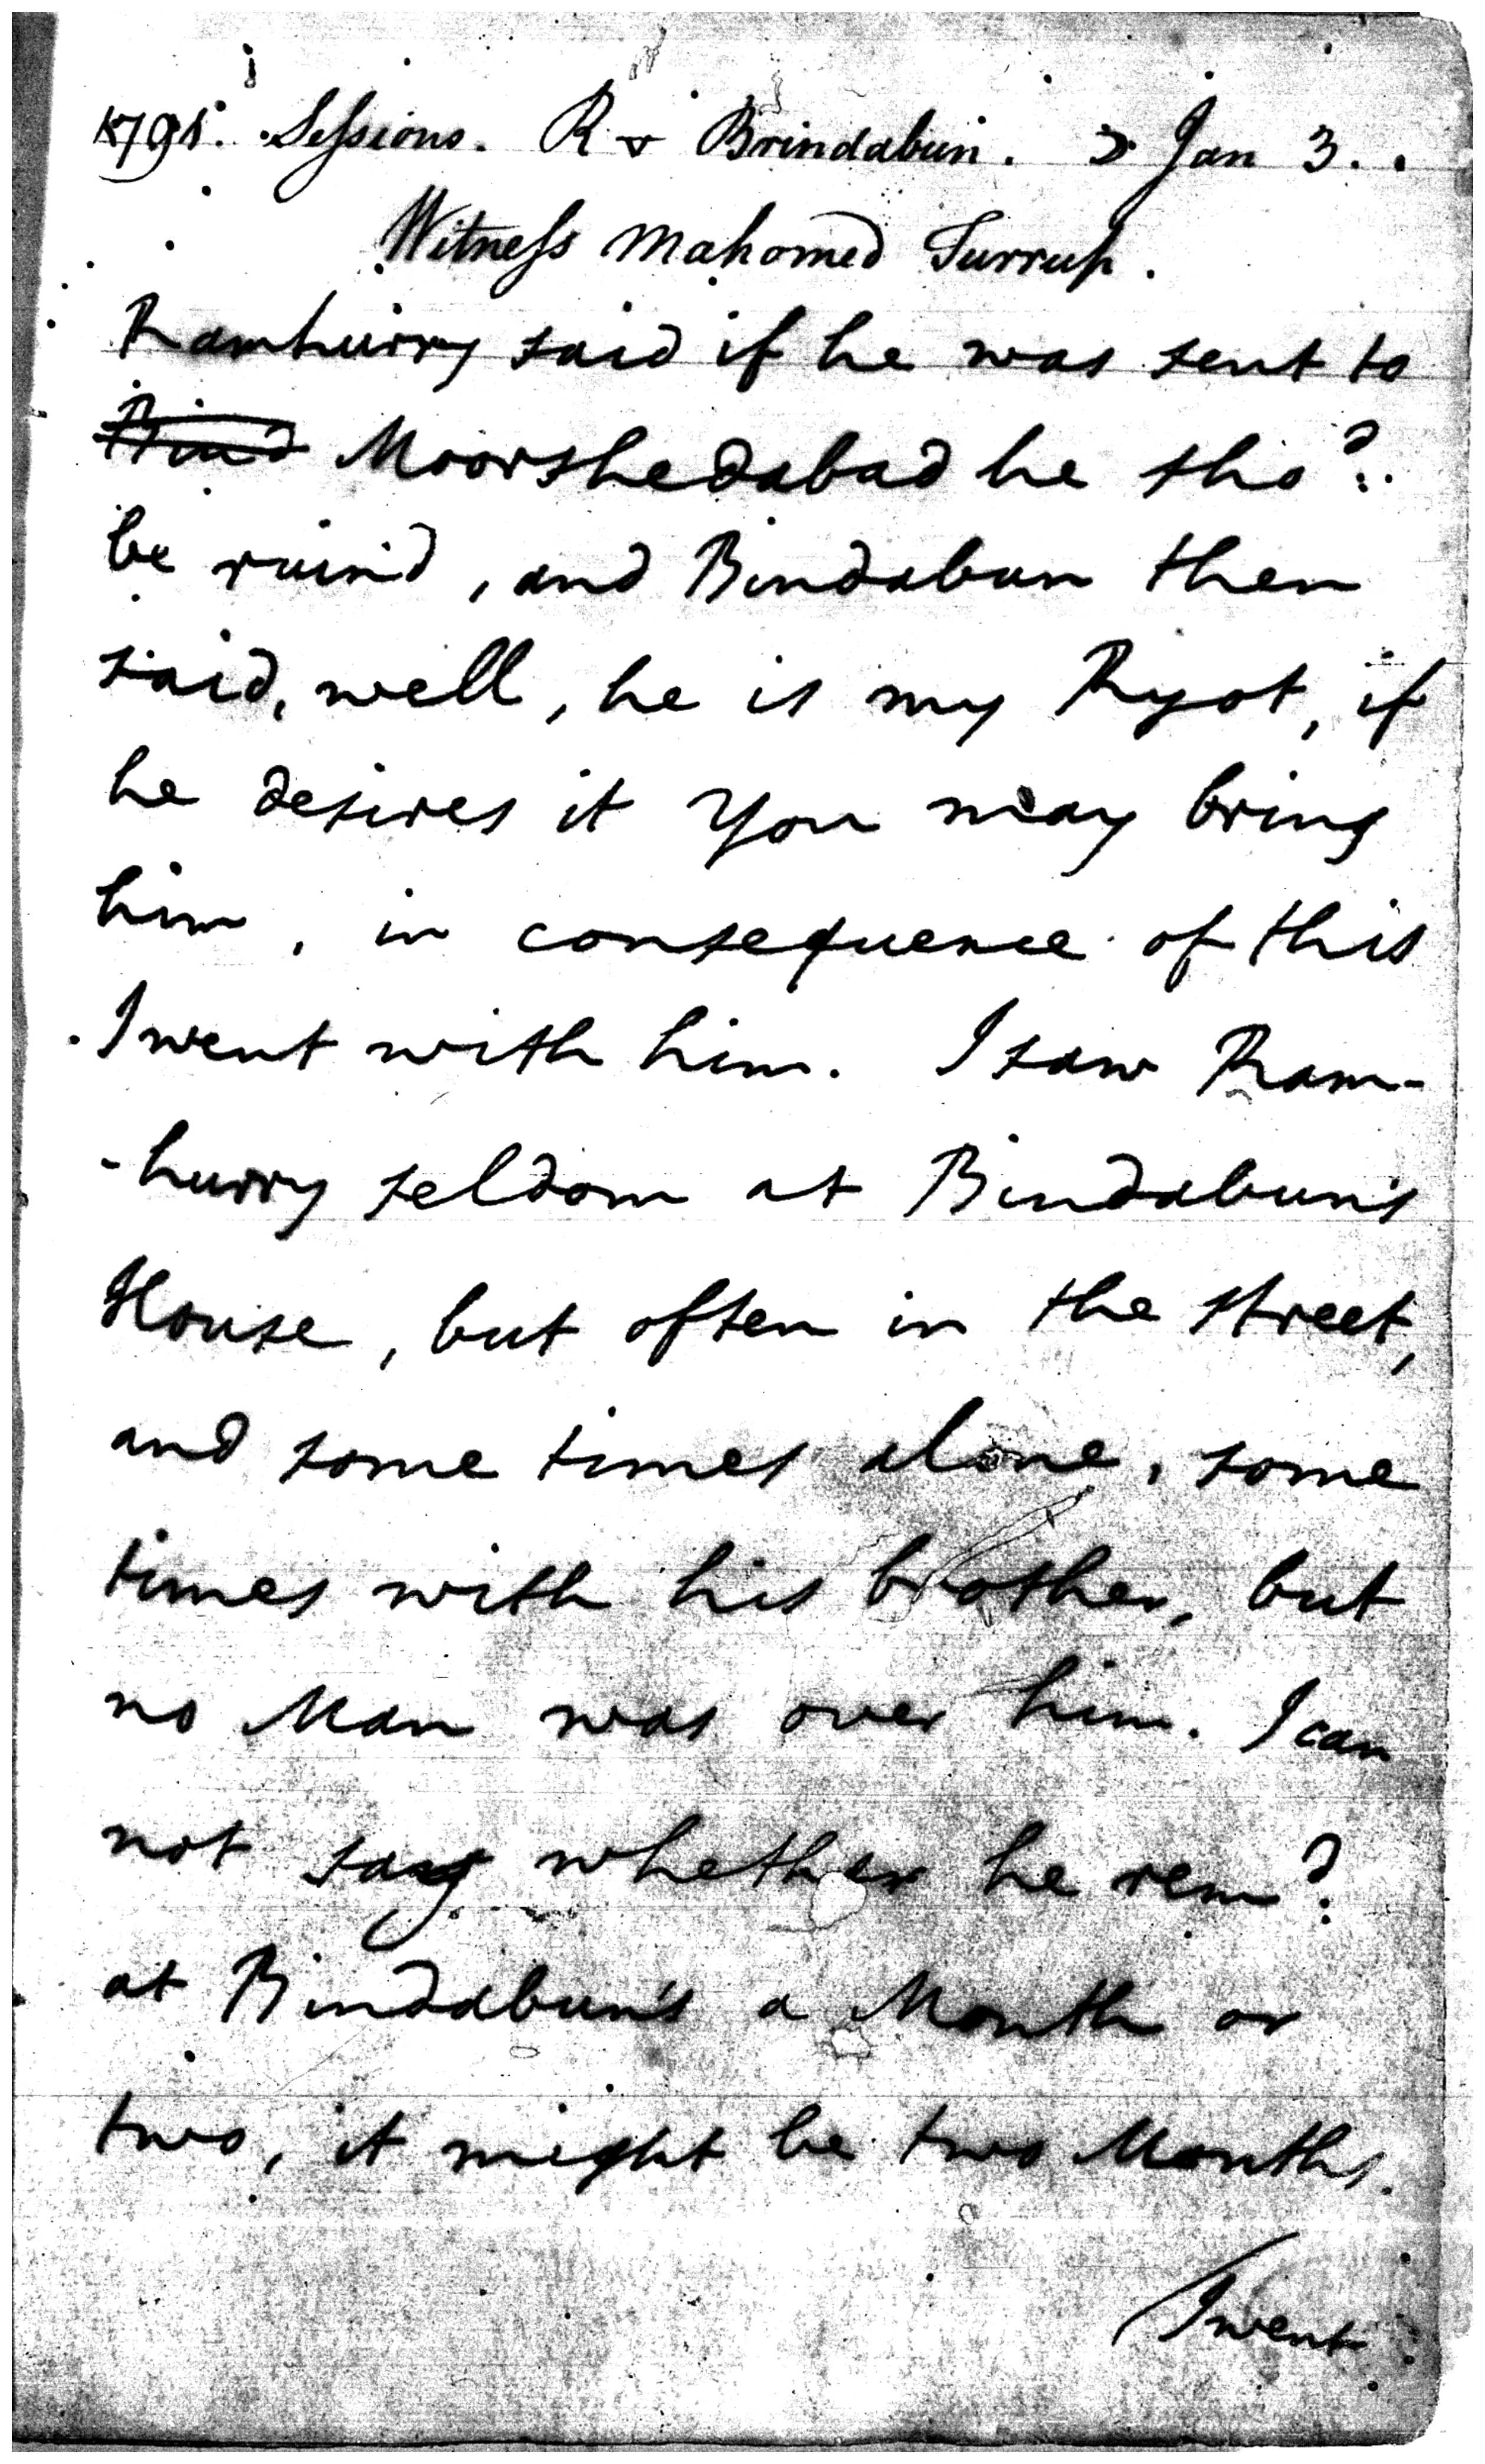 1791. Sessions. R v Brindabun. Jan 3.
Witness Mahomed Surrup.
Ramhurry said if he was sent to
Bind Moorshedabad he sho.d
be ruin'd, and Bindabun then
said, well, he is my Ryot, if
he desires it you may bring
him, in consequence of this
I went with him. I saw Ram-
-hurry seldom at Bindabun's
House, but often in the street,
and some times alone, some
times with his brother, but
no Man was over him. I can
not say whether he rem.d
at Bindabun's a Month or
two, it might be two Months.
I went